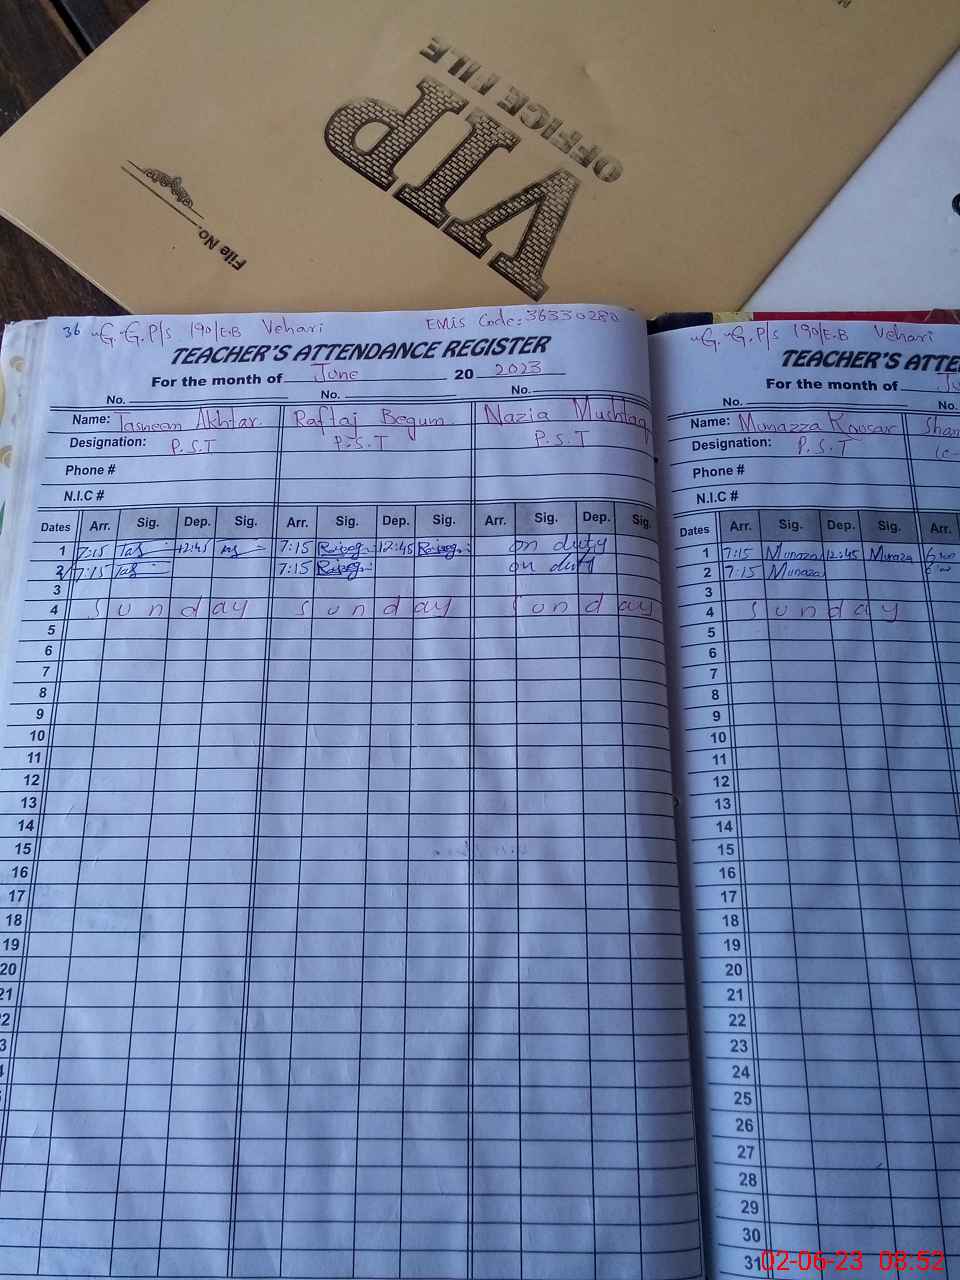 VIP
OFFICE FILE
File No.
36 G.G.P/s 190/E.B Vehari EMIS Code: 36330280
TEACHER'S ATTENDANCE REGISTER
For the month of June 2023
No. No. No.
Name: Tasneem Akhtar. Raftaj Begum. Nazia Mushtaq
Designation: P.S.T P.S.T P.S.T
Phone #
N.I.C #
Dates Arr. Sig. Dep. Sig. Arr. Sig. Dep. Sig. Arr. Sig. Dep. Sig.
1 7:15 Tas 12:45 7:15 12:45 on duty
2 7:15 Tas 7:15 on duty
3
4 Sunday Sunday Sunday
5
6
7
8
9
10
11
12
13
14
15
16
17
18
19
20
21
G.G.P/s 190/E.B Vehari
TEACHER'S ATTE
For the month of Ju
No. No.
Name: Munazza Kousar Sham
Designation: P.S.T
Phone #
N.I.C #
Dates Arr. Sig. Dep. Sig. Arr.
1 7:15 Munaza 12:45 Munaza
2 7:15 Munaza
3
4 Sunday
5
6
7
8
9
10
11
12
13
14
15
16
17
18
19
20
21
22
23
24
25
26
27
28
29
30
31
02-06-23 08:52